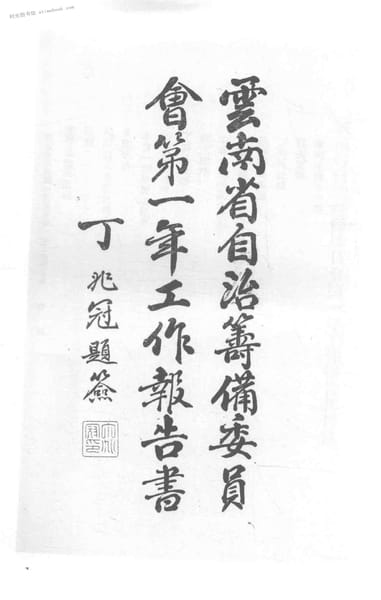 雲南省自治籌備委員
會第一年工作報告書
丁兆冠題簽